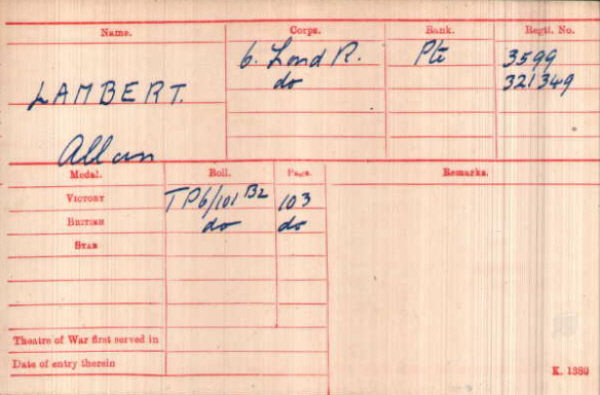 Name. Corps. Rank. Regtl. No.
6. Lond R. Pte 3599
LAMBERT. do 321349
Allan
Medal. Roll. Page. Remarks.
VICTORY TP6/101 B2 103
BRITISH do do
STAR
Theatre of War first served in
Date of entry therein
K. 1380